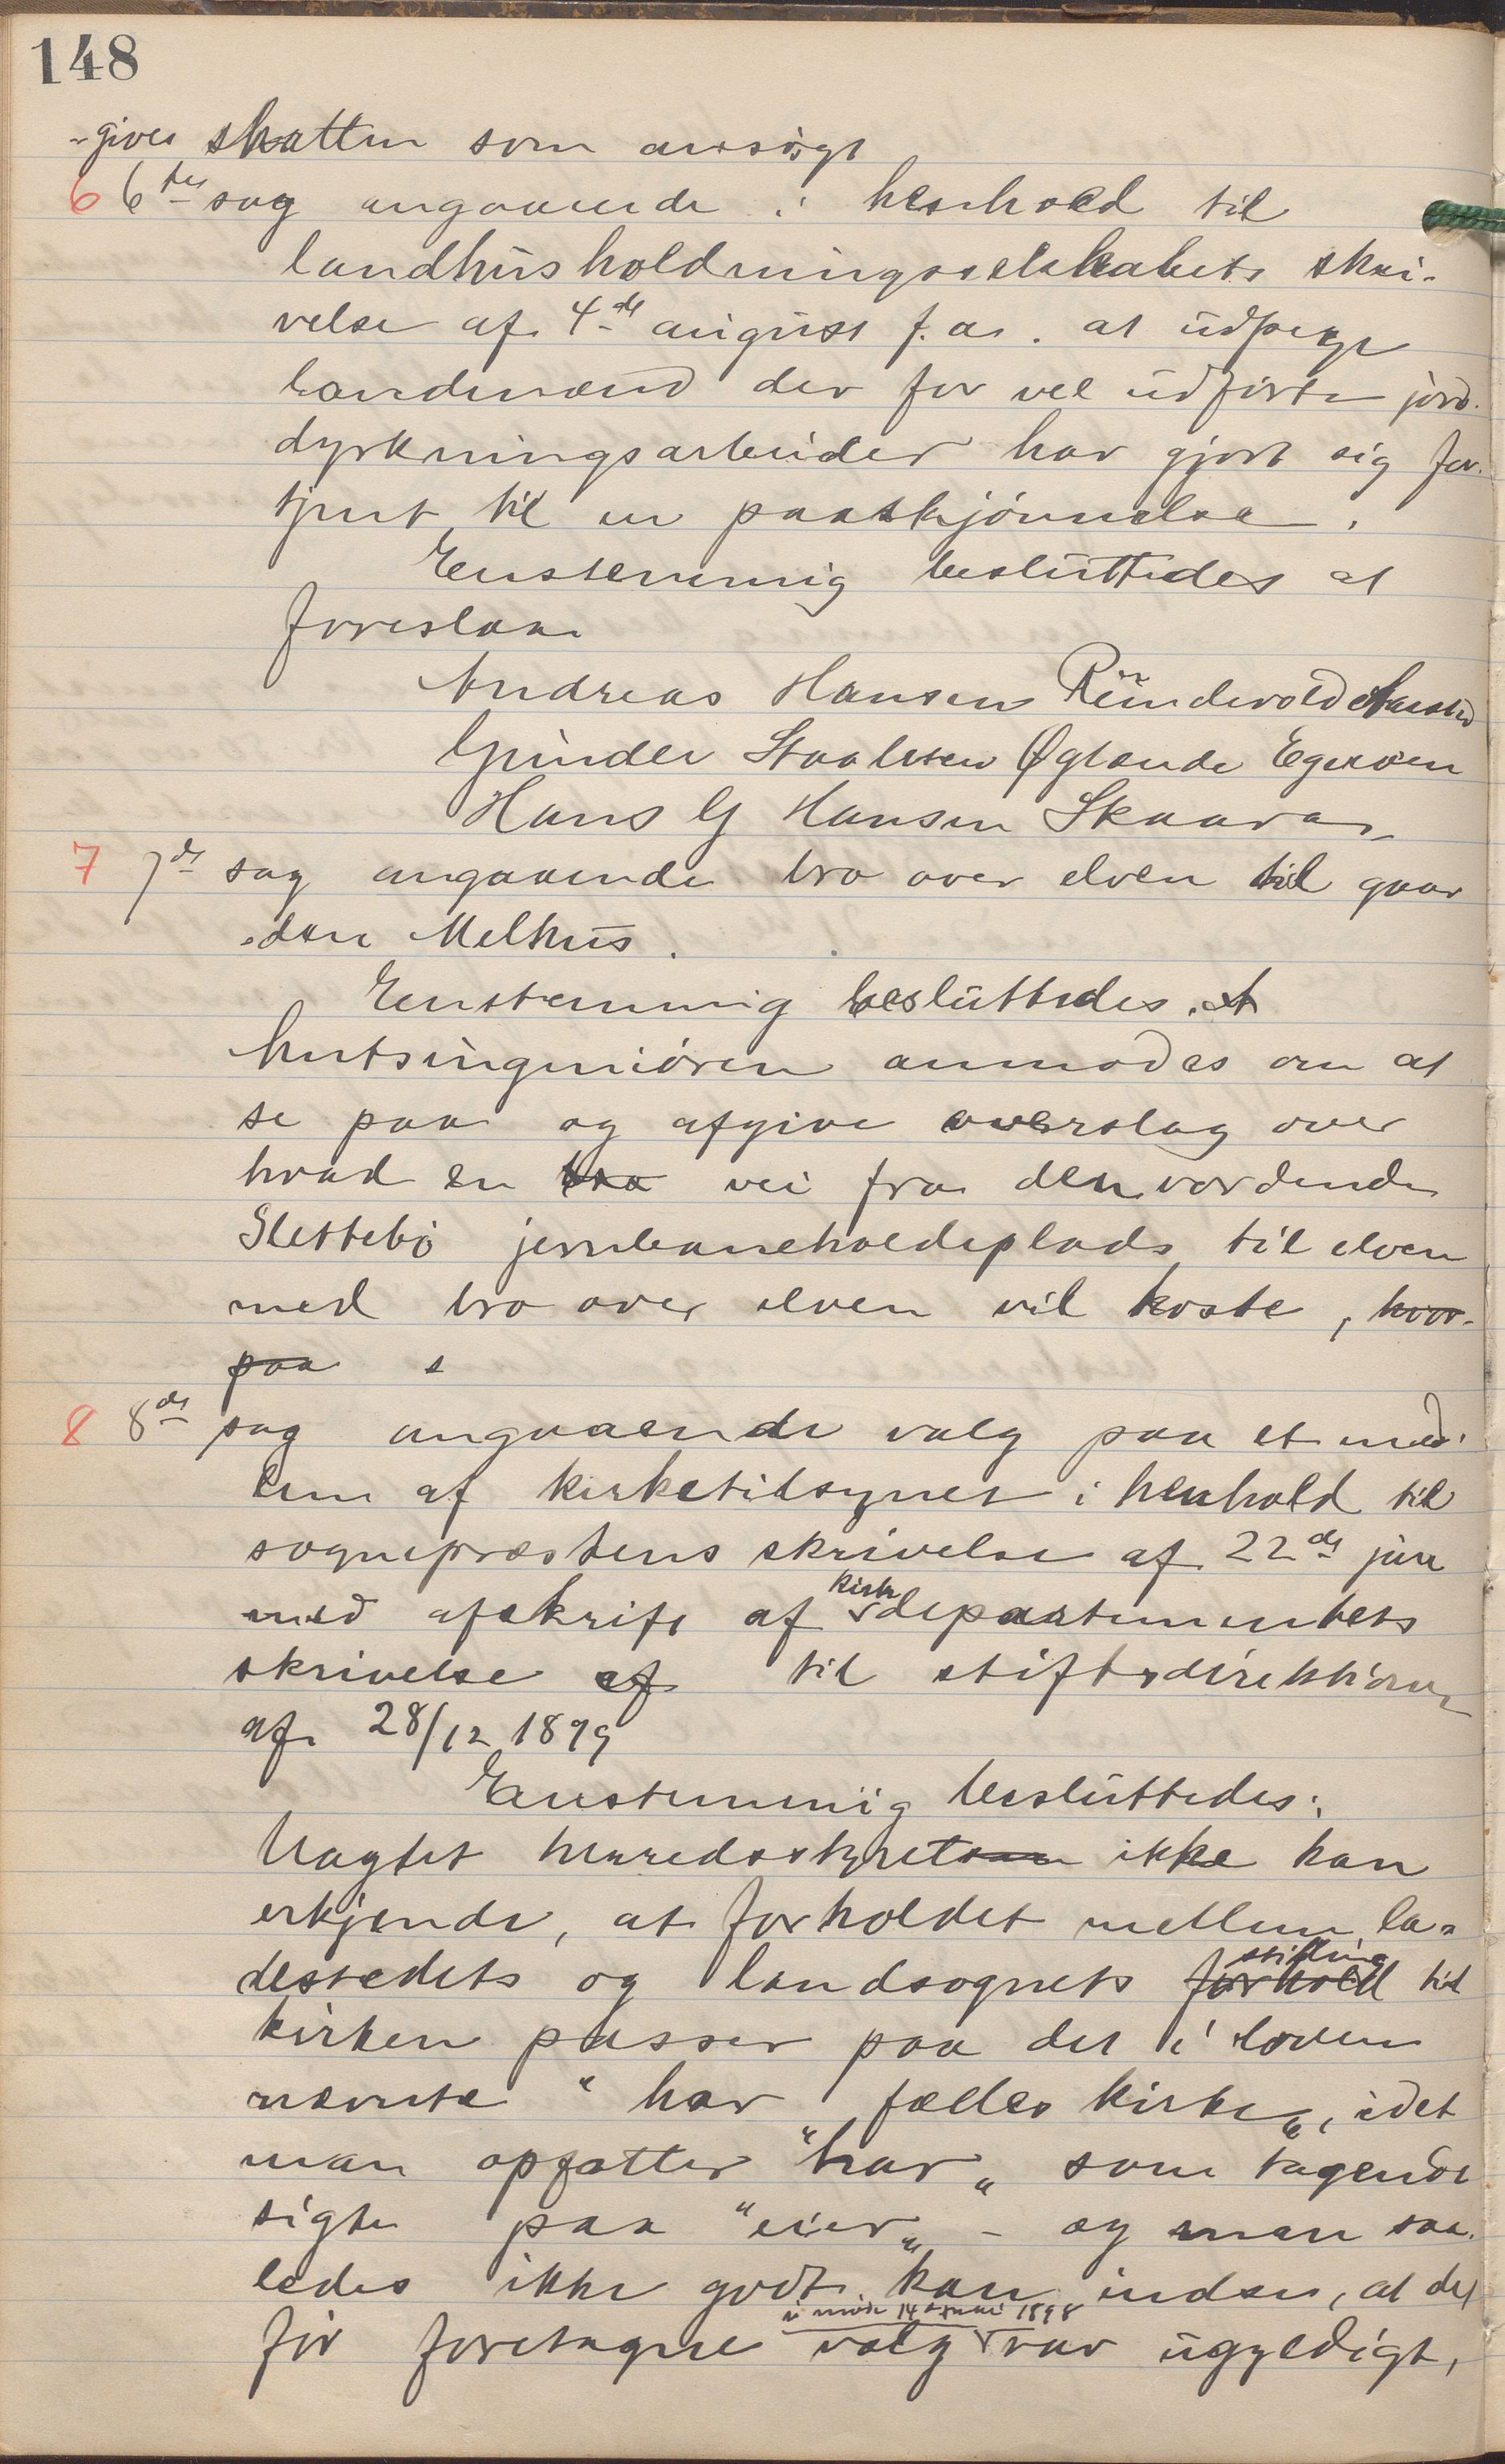 148
-gives skatten som ansøgt
6 6te sag angaaende i henhold til
landhusholdningsselskabets skri-
velse af 4de august f. a. at udpege
landmænd der for vel udførte jord-
dyrkningsarbeider har gjort sig for-
tjent til en paaskjønnelse.
Enstemmig besluttedes at
foreslaa
Andreas Hansen Rundevold
Gunder Staalesen Øglænde Egerøen
Hans G Hansen Skaara
7 7de sag angaaende bro over elven til gaar
-den Melhus.
Enstemmig besluttedes at
amtsingeniøren anmodes om at
se paa og afgive overslag over
hvad en bro vei fra den vordende
Slettebø jernbaneholdeplads til elven
med bro over elven vil koste, hvor-
paa s
8 8de sag angaaende valg paa et med-
lem af kirketilsynet i henhold til
sogneprestens skrivelse af 22de juni
med afskrift af kirkedepartementets
skrivelse af til stiftsdirektionen
af 28/12 1899
Enstemmig besluttedes:
Uagtet herredsstyret ikke kan
erkjende, at forholdet mellem la-
destedets og landsognets forhold stilling til
kirken passer paa det i loven
nævnte "har fælles kirke", idet
man opfatter "har" som tagende
sigte paa "eier" - og man saa-
ledes ikke godt kan indse, at det
før foretagne valg i møde 14de juni 1898 var ugyldigt,